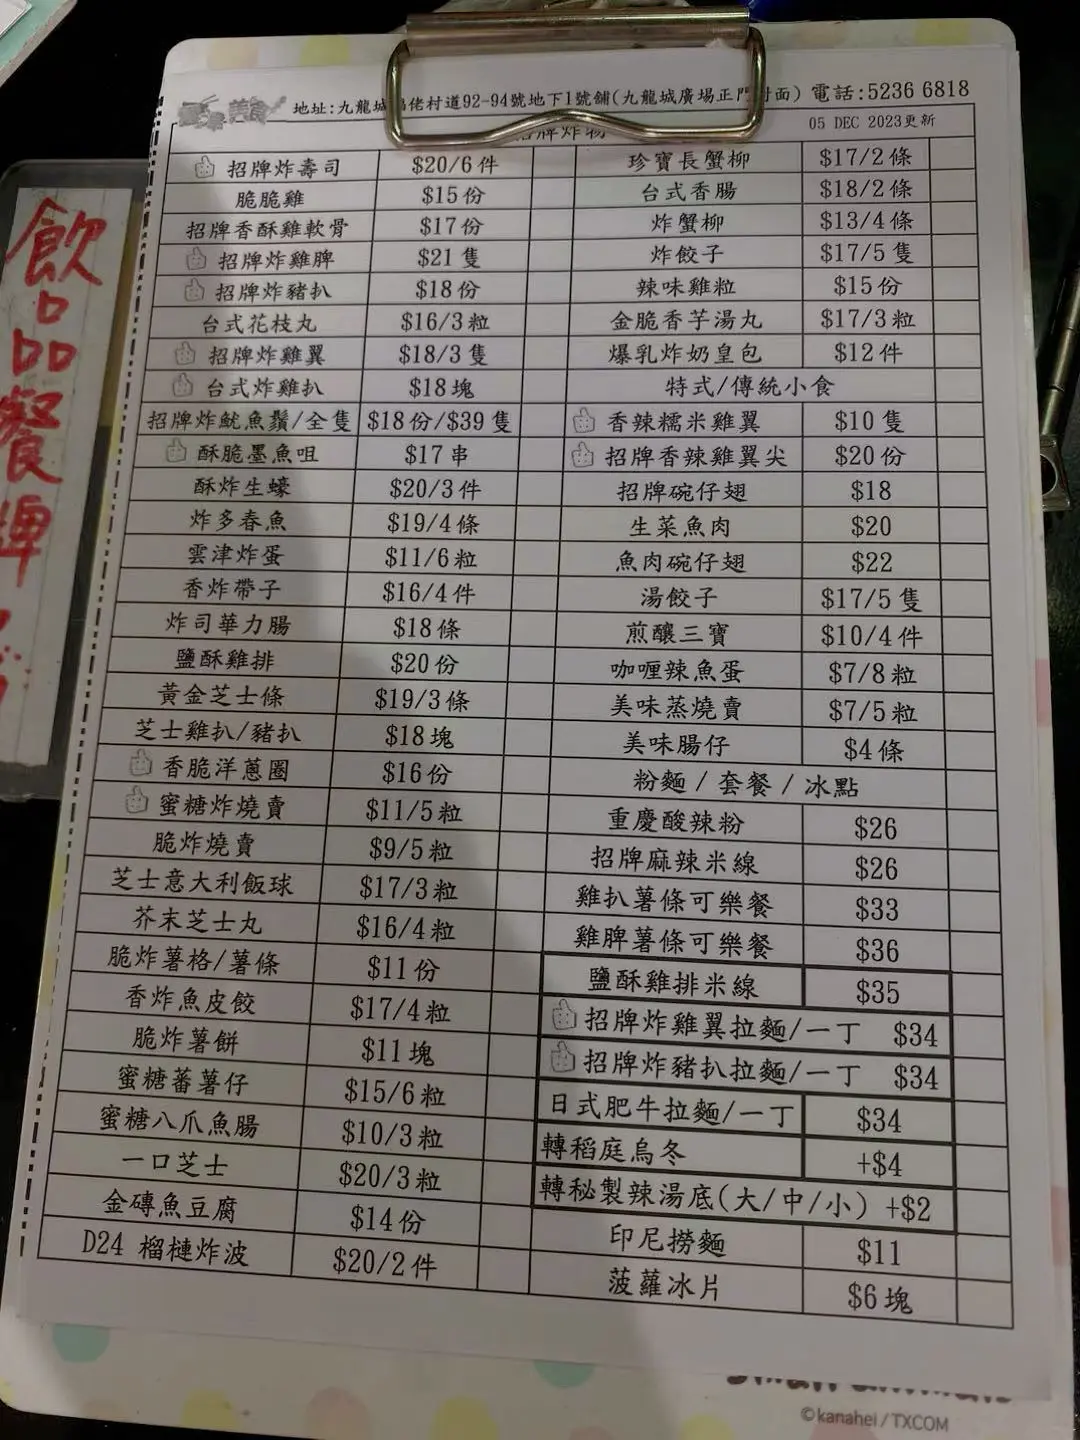 美食
地址:九龍城 佬村道92-94號地下1號舖(九龍城廣場正門對面) 電話:5236 6818
招牌炸物
05 DEC 2023更新
招牌炸壽司 $20/6件
脆脆雞 $15份
招牌香酥雞軟骨 $17份
招牌炸雞脾 $21隻
招牌炸豬扒 $18份
台式花枝丸 $16/3粒
招牌炸雞翼 $18/3隻
台式炸雞扒 $18塊
招牌炸魷魚鬚/全隻 $18份/$39隻
酥脆墨魚咀 $17串
酥炸生蠔 $20/3件
炸多春魚 $19/4條
雲津炸蛋 $11/6粒
香炸帶子 $16/4件
炸司華力腸 $18條
鹽酥雞排 $20份
黃金芝士條 $19/3條
芝士雞扒/豬扒 $18塊
香脆洋蔥圈 $16份
蜜糖炸燒賣 $11/5粒
脆炸燒賣 $9/5粒
芝士意大利飯球 $17/3粒
芥末芝士丸 $16/4粒
脆炸薯格/薯條 $11份
香炸魚皮餃 $17/4粒
脆炸薯餅 $11塊
蜜糖蕃薯仔 $15/6粒
蜜糖八爪魚腸 $10/3粒
一口芝士 $20/3粒
金磚魚豆腐 $14份
D24 榴槤炸波 $20/2件
珍寶長蟹柳 $17/2條
台式香腸 $18/2條
炸蟹柳 $13/4條
炸餃子 $17/5隻
辣味雞粒 $15份
金脆香芋湯丸 $17/3粒
爆乳炸奶皇包 $12件
特式/傳統小食
香辣糯米雞翼 $10隻
招牌香辣雞翼尖 $20份
招牌碗仔翅 $18
生菜魚肉 $20
魚肉碗仔翅 $22
湯餃子 $17/5隻
煎釀三寶 $10/4件
咖喱辣魚蛋 $7/8粒
美味蒸燒賣 $7/5粒
美味腸仔 $4條
粉麵 / 套餐 / 冰點
重慶酸辣粉 $26
招牌麻辣米線 $26
雞扒薯條可樂餐 $33
雞脾薯條可樂餐 $36
鹽酥雞排米線 $35
招牌炸雞翼拉麵/一丁 $34
招牌炸豬扒拉麵/一丁 $34
日式肥牛拉麵/一丁 $34
轉稻庭烏冬 +$4
轉秘製辣湯底(大/中/小) +$2
印尼撈麵 $11
菠蘿冰片 $6塊
飲品餐牌
©kanahei/TXCOM